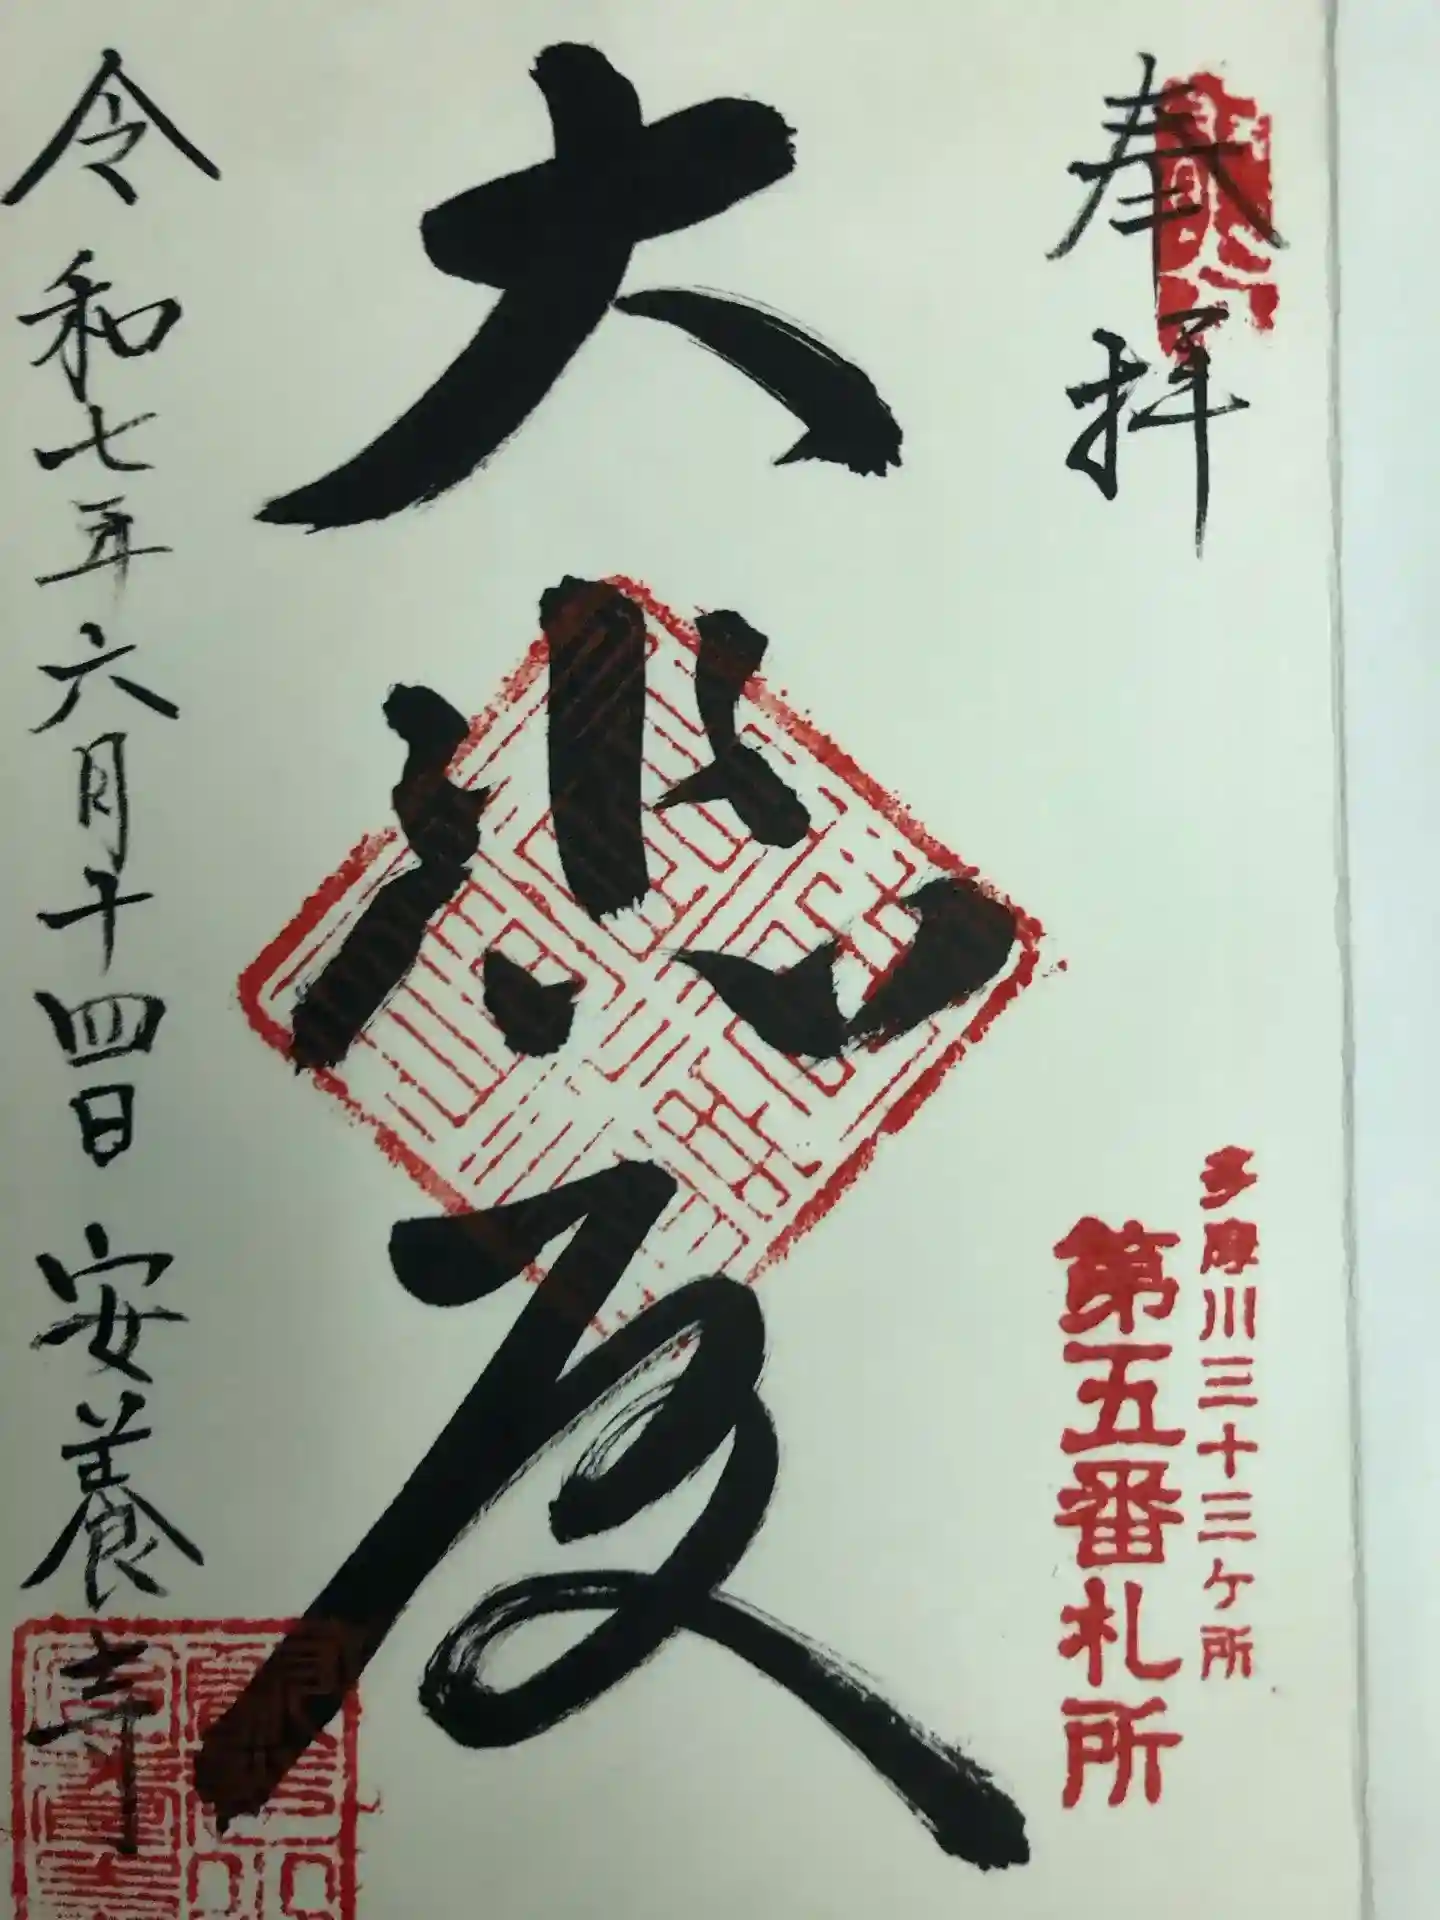 奉拝
多摩川三十三ヶ所
第五番札所
大悲殿
令和七年六月十四日 安養寺